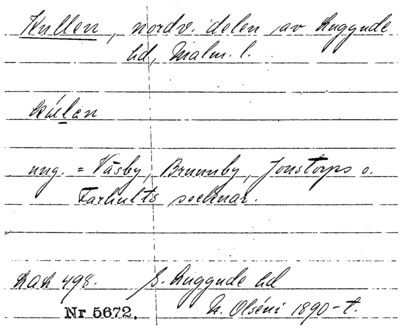 Kullen, nordv. delen av Luggude
hd, Malm. l.
kúlan
ung. = Väsby, Brunnby, Jonstorps o.
Farhults socknar.
Rak 498. S. Luggude hd
Nr 5672. N. Olséni 1890-t.